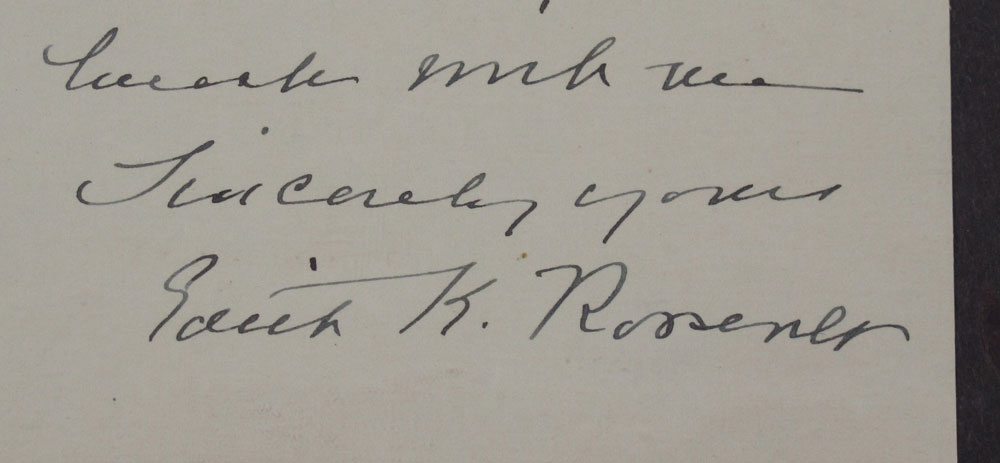 with me
Sincerely yours
Edith K. Roosevelt